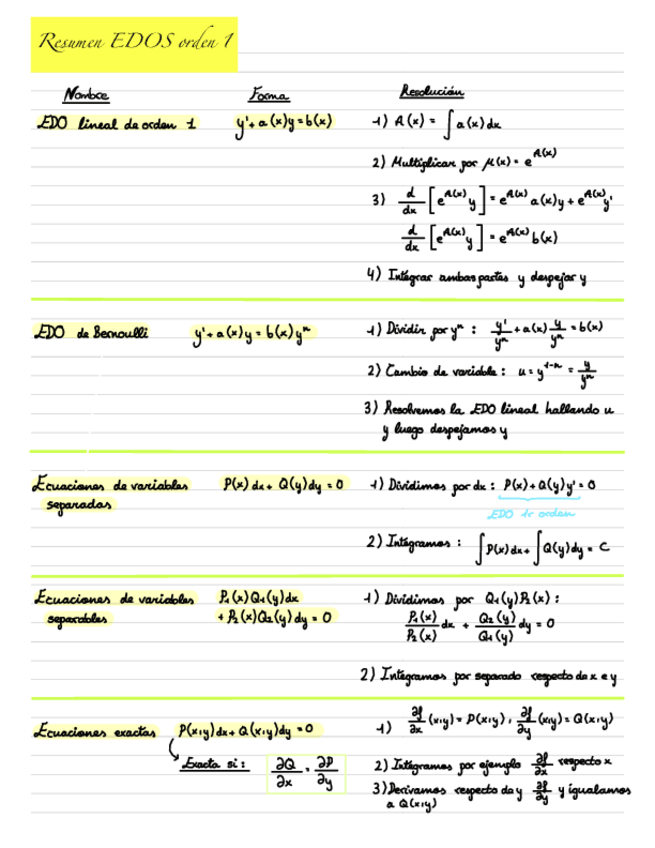 Resumen EDOS orden 1
Nombre Forma Resolución
EDO lineal de orden 1 y'+a(x)y=b(x) 1) A(x) = ∫a(x)dx
2) Multiplicar por μ(x) = e^A(x)
3) d/dx [e^A(x) y] = e^A(x) a(x)y + e^A(x) y'
d/dx [e^A(x) y] = e^A(x) b(x)
4) Integrar ambas partes y despejar y
EDO de Bernoulli y'+a(x)y=b(x)y^n 1) Dividir por y^n : y'/y^n + a(x) y/y^n = b(x)
2) Cambio de variable : u = y^1-n = y/y^n
3) Resolvemos la EDO lineal hallando u
y luego despejamos y
Ecuaciones de variables P(x)dx+ Q(y)dy = 0 1) Dividimos por dx : P(x)+Q(y)y' = 0
separadas EDO 1r orden
2) Integramos : ∫P(x)dx + ∫Q(y)dy = C
Ecuaciones de variables P₁(x)Q₁(y)dx 1) Dividimos por Q₁(y)P₂(x) :
separables + P₂(x)Q₂(y)dy = 0 P₁(x)/P₂(x) dx + Q₂(y)/Q₁(y) dy = 0
2) Integramos por separado respecto de x e y
Ecuaciones exactas P(x,y)dx+Q(x,y)dy = 0 1) ∂f/∂x (x,y) = P(x,y) , ∂f/∂y (x,y) = Q(x,y)
Exacta si : ∂Q/∂x = ∂P/∂y 2) Integramos por ejemplo ∂f/∂x respecto x
3) Derivamos respecto de y ∂f/∂y y igualamos
a Q(x,y)